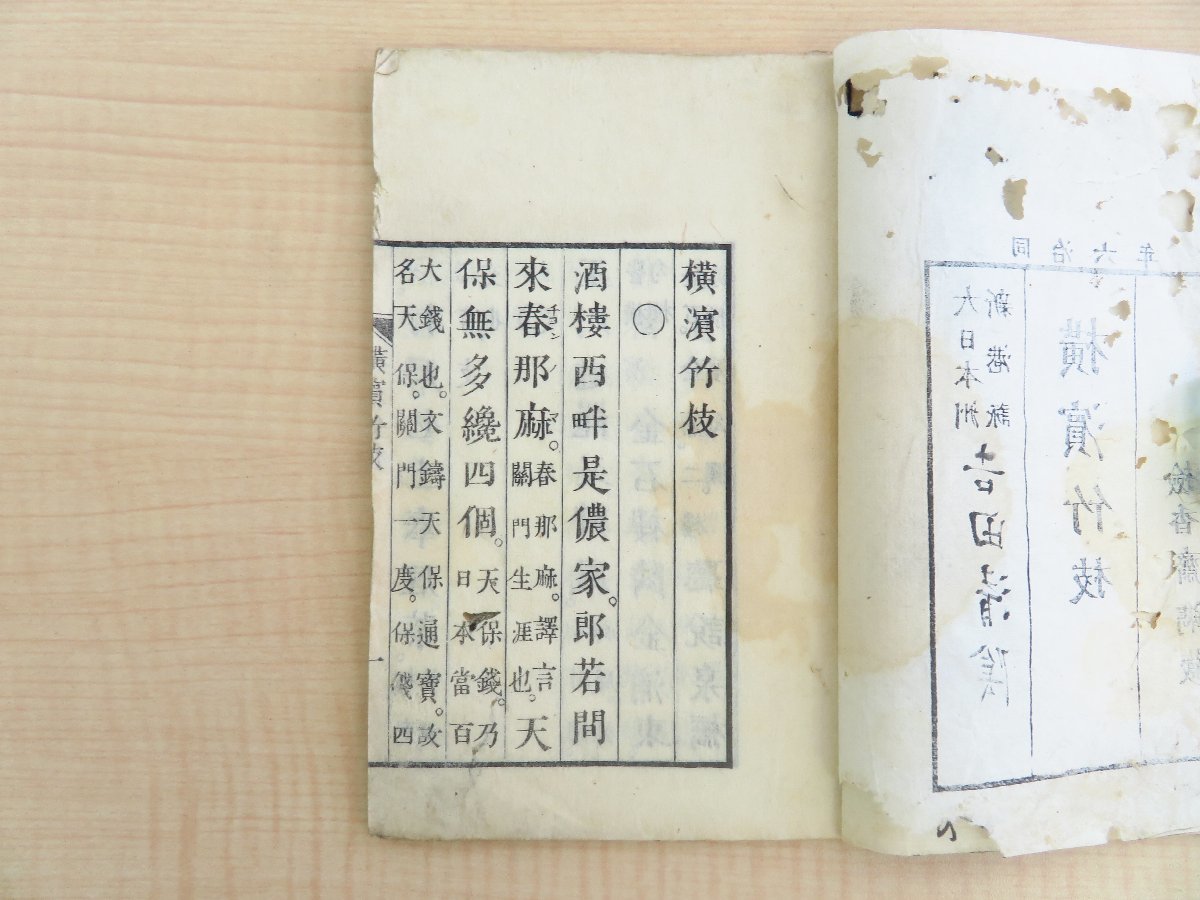 同治六年
大日本洲
新港詠
吉田清陰
橫濱竹枝
橫濱竹枝
○
酒樓西畔是儂家。郎若間
來春那麻。春那麻。譯言關門生涯也。天
保無多纔四個。天保錢。乃日本當百
大錢也。文鑄天保通寶。故名天保。關門一度。保錢四
橫濱竹枝
一